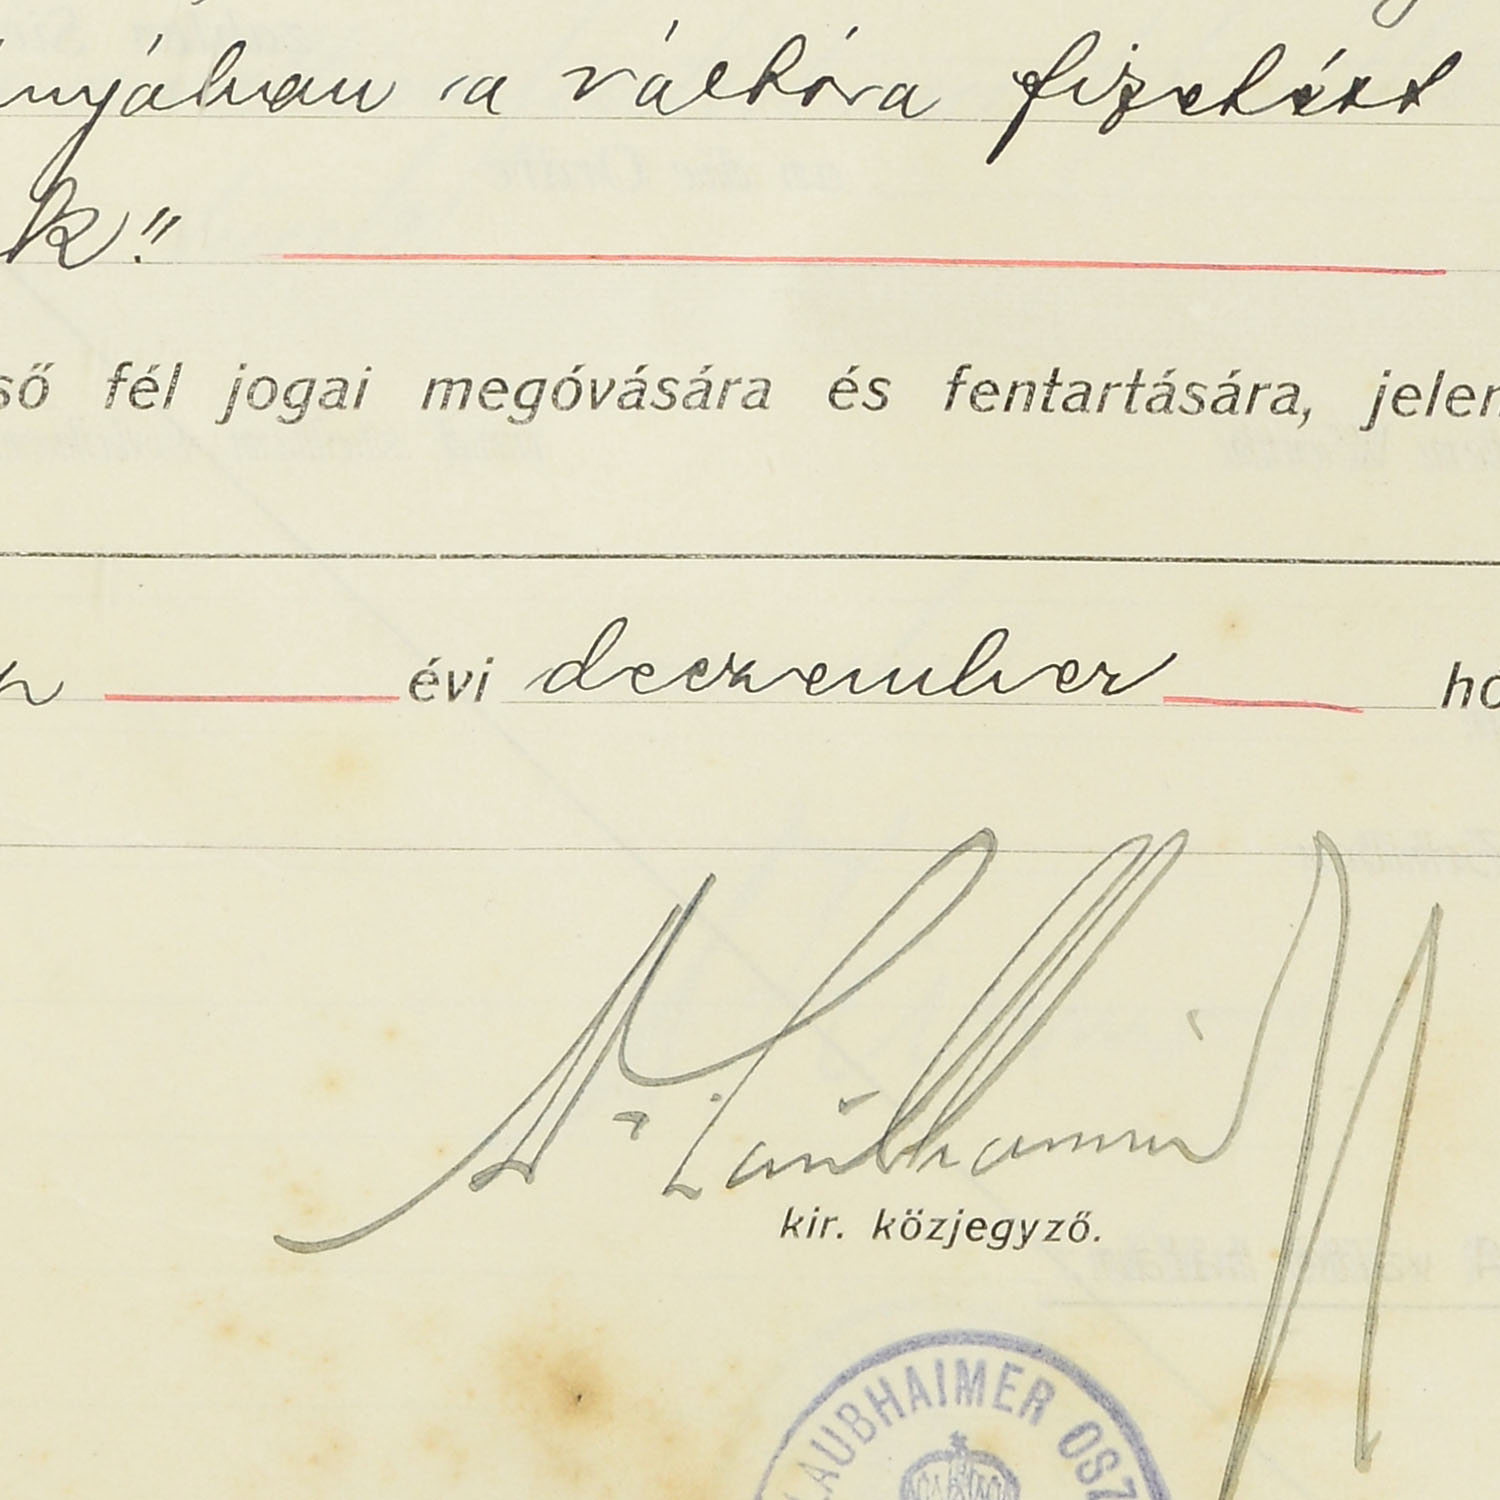 nyjában a váltóra fizetést
k."
ső fél jogai megóvására és fentartására, jelen
évi deczember hó
Dr Laubhaimer
kir. közjegyző.
LAUBHAIMER OSZ